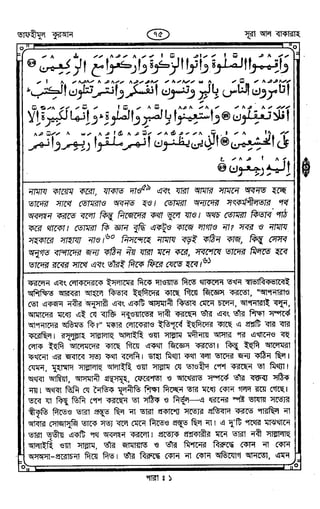 তাফহীমুল কুরআন
৭৫
সূরা আল বাকারাহ
وَأَقِيمُوا الصَّلٰوةَ وَاٰتُوا الزَّكٰوةَ وَارْكَعُوا مَعَ الرّٰكِعِينَ
أَتَأْمُرُونَ النَّاسَ بِالْبِرِّ وَتَنْسَوْنَ أَنْفُسَكُمْ وَأَنْتُمْ تَتْلُونَ الْكِتٰبَ
أَفَلَا تَعْقِلُونَ وَاسْتَعِينُوا بِالصَّبْرِ وَالصَّلٰوةِ وَإِنَّهَا لَكَبِيرَةٌ إِلَّا
عَلَى الْخٰشِعِينَ الَّذِينَ يَظُنُّونَ أَنَّهُمْ مُلٰقُوا رَبِّهِمْ وَأَنَّهُمْ
إِلَيْهِ رٰجِعُونَ
নামায কায়েম করো, যাকাত দাও৫৯ এবং যারা আমার সামনে অবনত হচ্ছে
তাদের সাথে তোমরাও অবনত হও। তোমরা অন্যদের সৎকর্মশীলতার পথ
অবলম্বন করতে বলো কিন্তু নিজেদের কথা ভুলে যাও। অথচ তোমরা কিতাব পাঠ
করে থাকো। তোমরা কি জ্ঞান বুদ্ধি একটুও কাজে লাগাও না? সবর ও নামায
সহকারে সাহায্য নাও।৬০ নিসন্দেহে নামায বড়ই কঠিন কাজ, কিন্তু সেসব
অনুগত বান্দাদের জন্য কঠিন নয় যারা মনে করে, সবশেষে তাদের মিলতে হবে
তাদের রবের সাথে এবং তাঁরই দিকে ফিরে যেতে হবে।৬১
করলেন এবং লোকদেরকে ইসলামের দিকে দাওয়াত দিতে থাকলেন তখন স্বাভাবিকভাবেই
অশিক্ষিত আরবরা আহলে কিতাব ইহুদিদের কাছে গিয়ে জিজ্ঞেস করতো, "আপনারাও
তো একজন নবীর অনুসারী এবং একটি আসমানী কিতাব মেনে চলেন, আপনারাই বলুন,
আমাদের মধ্যে এই যে ব্যক্তি নবুওয়াতের দাবী করছেন তাঁর এবং তাঁর শিক্ষা সম্পর্কে
আপনাদের অভিমত কি?" মক্কার লোকেরাও ইতিপূর্বে ইহুদিদের কাছে এ প্রশ্নটি বার বার
করেছিল। রসূলুল্লাহ সাল্লাল্লাহু আলাইহি ওয়া সাল্লাম মদীনায় আসার পর এখানেও বহু
লোক ইহুদি আলেমদের কাছে গিয়ে একথা জিজ্ঞেস করতো। কিন্তু ইহুদি আলেমরা
কখনো এর জবাবে সত্য কথা বলেনি। ডাহা মিথ্যা কথা বলা তাদের জন্য কঠিন ছিল।
যেমন, মুহাম্মাদ সাল্লাল্লাহু আলাইহি ওয়া সাল্লাম যে তাওহীদ পেশ করছেন তা মিথ্যা।
অথবা আম্বিয়া, আসমানী গ্রন্থসমূহ, ফেরেশতা ও আখেরাত সম্পর্কে তাঁর বক্তব্য সঠিক
নয়। অথবা তিনি যে নৈতিক মূলনীতি শিক্ষা দিচ্ছেন তার মধ্যে কোন গলদ রয়ে গেছে।
তবে যা কিছু তিনি পেশ করছেন তা সঠিক ও নির্ভুল—এ ধরনের স্পষ্ট ভাষায় সত্যের
স্বীকৃতি দিতেও তারা প্রস্তুত ছিল না তারা প্রকাশ্যে সত্যের প্রতিবাদ করতে পারছিল না
আবার সোজাসুজি তাকে সত্য বলে মেনে নিতেও প্রস্তুত ছিল না। এ দু'টি পথের মাঝখানে
তারা তৃতীয় একটি পথ অবলম্বন করলো। প্রত্যেক প্রশ্নকারীর মনে তারা নবী সাল্লাল্লাহু
আলাইহি ওয়া সাল্লাম, তাঁর জামায়াত ও তাঁর মিশনের বিরুদ্ধে কোন না কোন
অসঅসা-প্ররোচনা দিয়ে দিত। তাঁর বিরুদ্ধে কোন না কোন অভিযোগ আনতো, এমন
পারা : ১